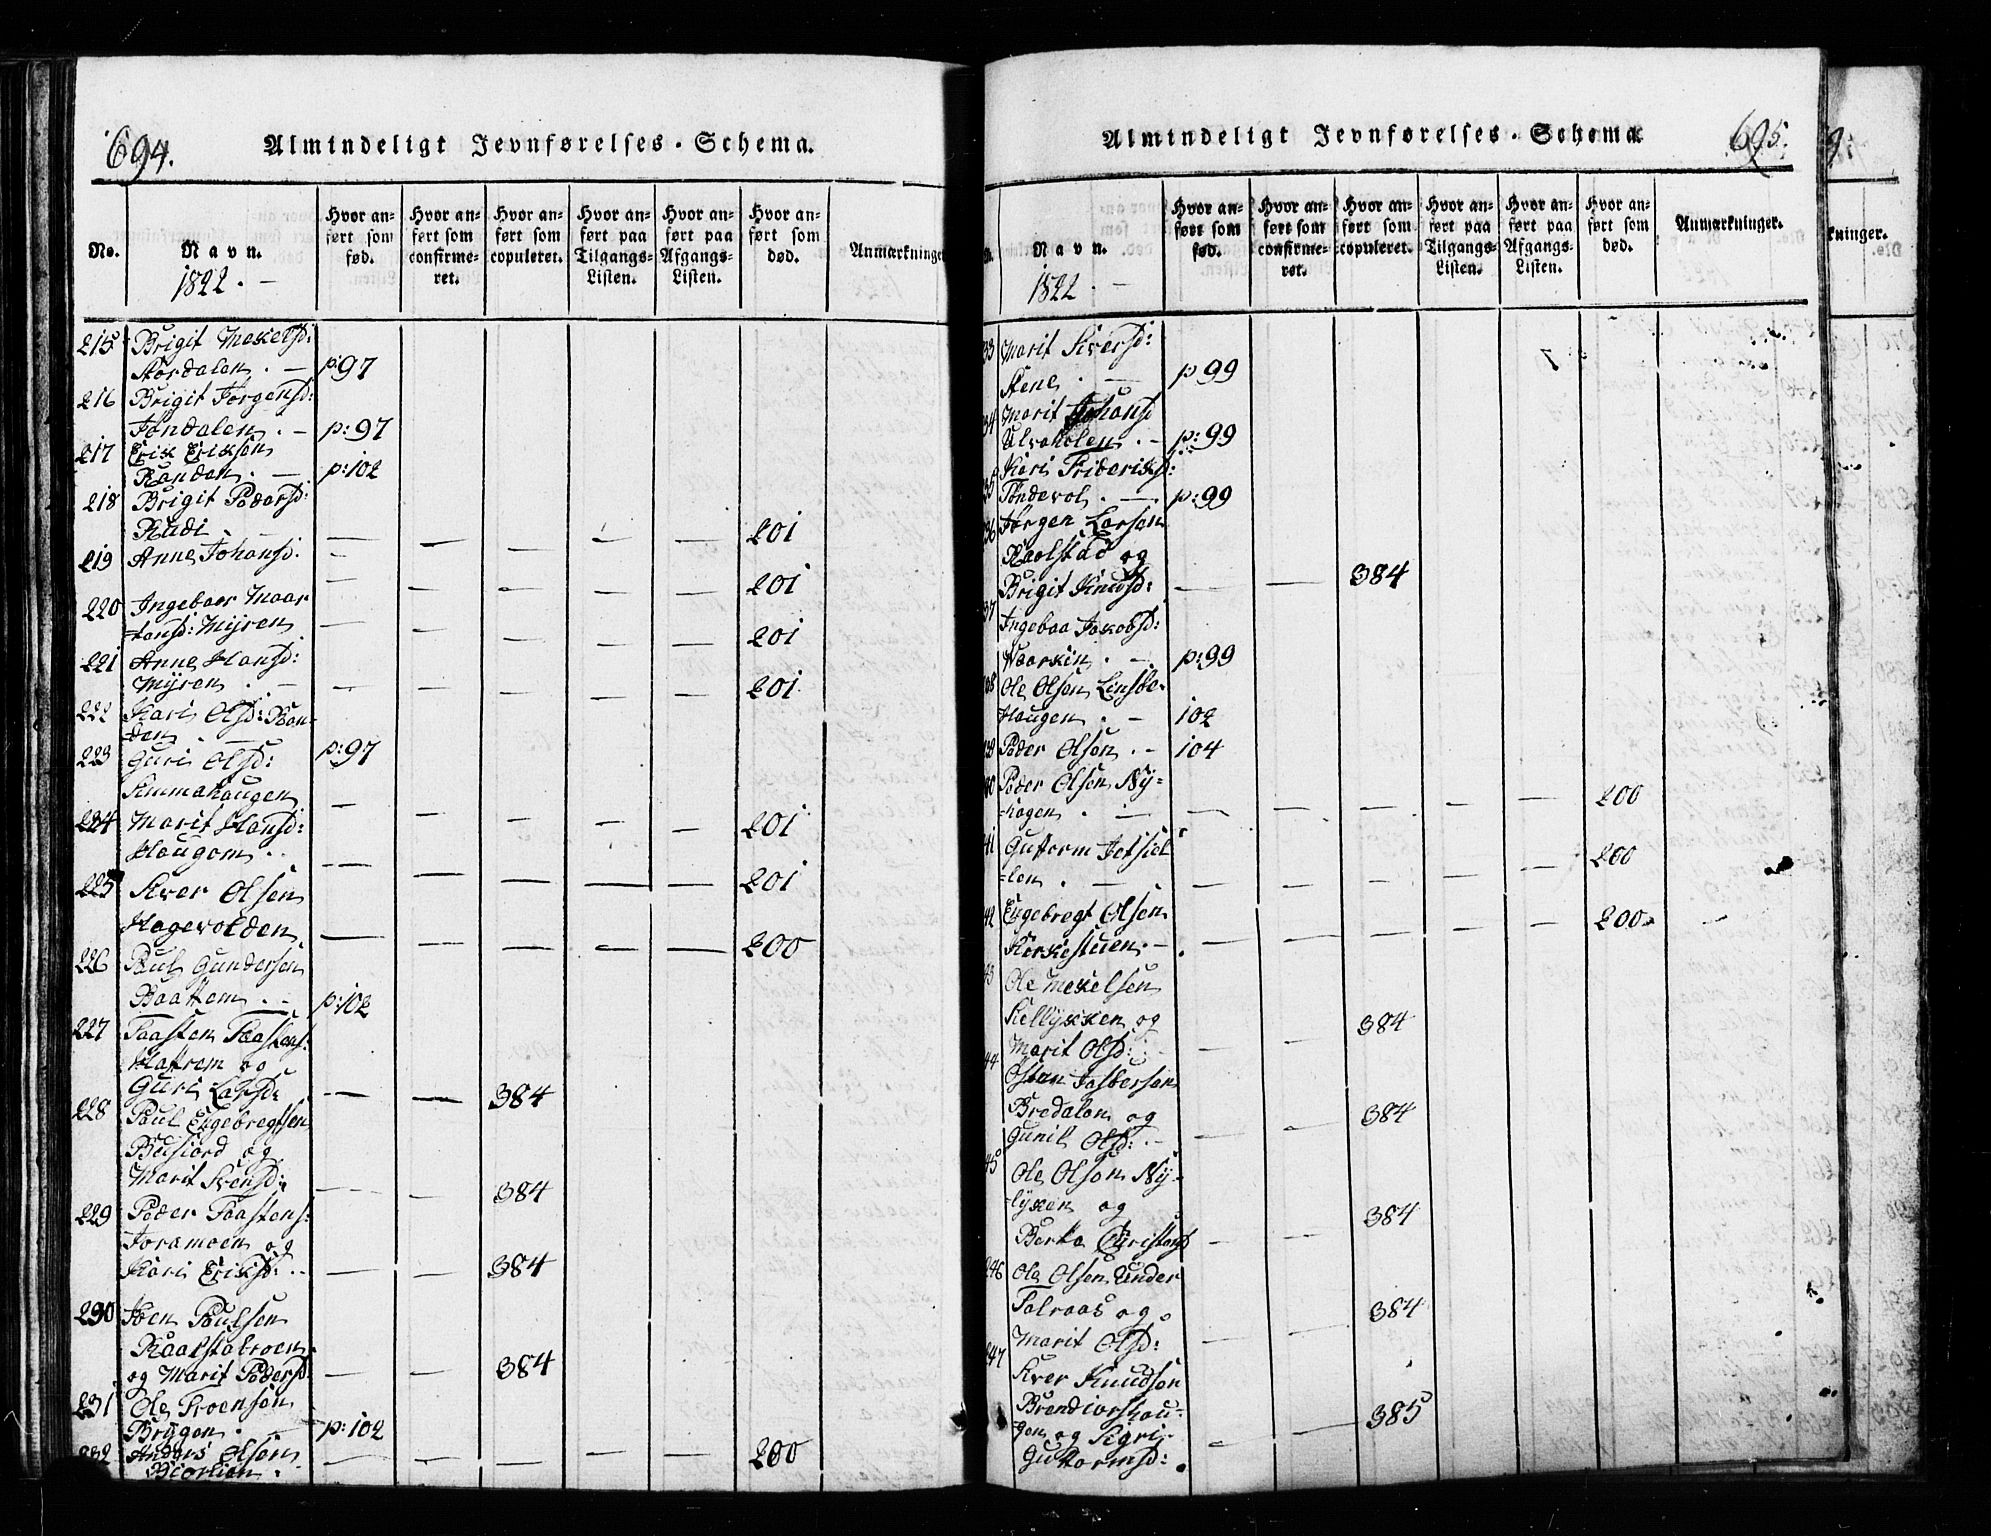 694.
Almindeligt Jevnførelses-Schema.
No.
Navn.
1822. -
Hvor anført som fød.
Hvor anført som confirmeret.
Hvor anført som copuleret.
Hvor anført paa Tilgangs-Listen.
Hvor anført paa Afgangs-Listen.
Hvor anført som død.
Anmærkninger
215 Brigit Mekelsd:
Stordalen. — p:97
216 Brigit Jørgensd:
Jøndalen. — p:97
217 Erik Eriksen
Randen. — p:102
218 Brigit Pedersd:
Rudi — — — — — 201
219 Anne Johansd: —
— — — — — 201
220 Ingeboer Maar
=tansd: Myren — — — — — 201
221 Anne Hansd:
Myren. — — — — — — 201
222 Kari Olsd: Ran-
den. — p:97
223 Guri Olsd:
Simmahaugen — — — — — 201
224 Marit Hansd:
Haugom. — — — — — 201
225 Siver Olsen
Hagevolden — — — — — 200
226 Paul Gundersen
Baattem. — p:102
227 Taasten Taastens:
Hattrem og
Guri Larsd: — — 384
228 Paul Engebregtsen
Bøsiord og
Marit Svensd: — — 384
229 Peder Taastens:
Joramoen og
Kari Eriksd: — — 384
230 Joen Paulsen
Raalstabroen
og Marit Pedersd: — — 384
231 Ole Troensøn
Bryggen. — p:102
232 Anders Olsen
Biorlien. — — — — — 200
695.
Almindeligt Jevnførelses-Schema.
Navn.
1822 -
Hvor anført som fød.
Hvor anført som confirmeret.
Hvor anført som copuleret.
Hvor anført paa Tilgangs-Listen.
Hvor anført paa Afgangs-Listen.
Hvor anført som død.
Anmærkninger.
33 Marit Siversd:
Stene. — p 99
34 Marit Johansd
Ulvaholen. — p:99
35 Kari Frideriksd:
Tøndevol. — p:99
36 Jørgen Larsen
Raolstad og
Brigit Knudsd: — — 384
37 Ingebaa Jakobsd:
Naarsin. — p:99
38 Ole Olsen Linsbe-
Haugen. — 102
39 Peder Olsen. — 104
40 Peder Olsen Ny=
=hagen. — — — — — — 200
41 Guttorm Jetsiel
=len. — — — — — — 200
42 Engebregt Olsen
Kørkestuen. — — — — — 200
43 Ole Mekelsen
Kellykken og
Marit Olsd: — — 384
44 Østen Jasbersen
Bredalen og
Gunil Olsd: — — 384
45 Ole Olsen Ny-
=lyken og
Berte Christensd — — 384
246 Ole Olsen Under
Talraas og
Marit Olsd: — — 384
247 Siver Knudsøn
Brendiorshau-
gen og Sigri
Guttormsd: — — 385
kninger.